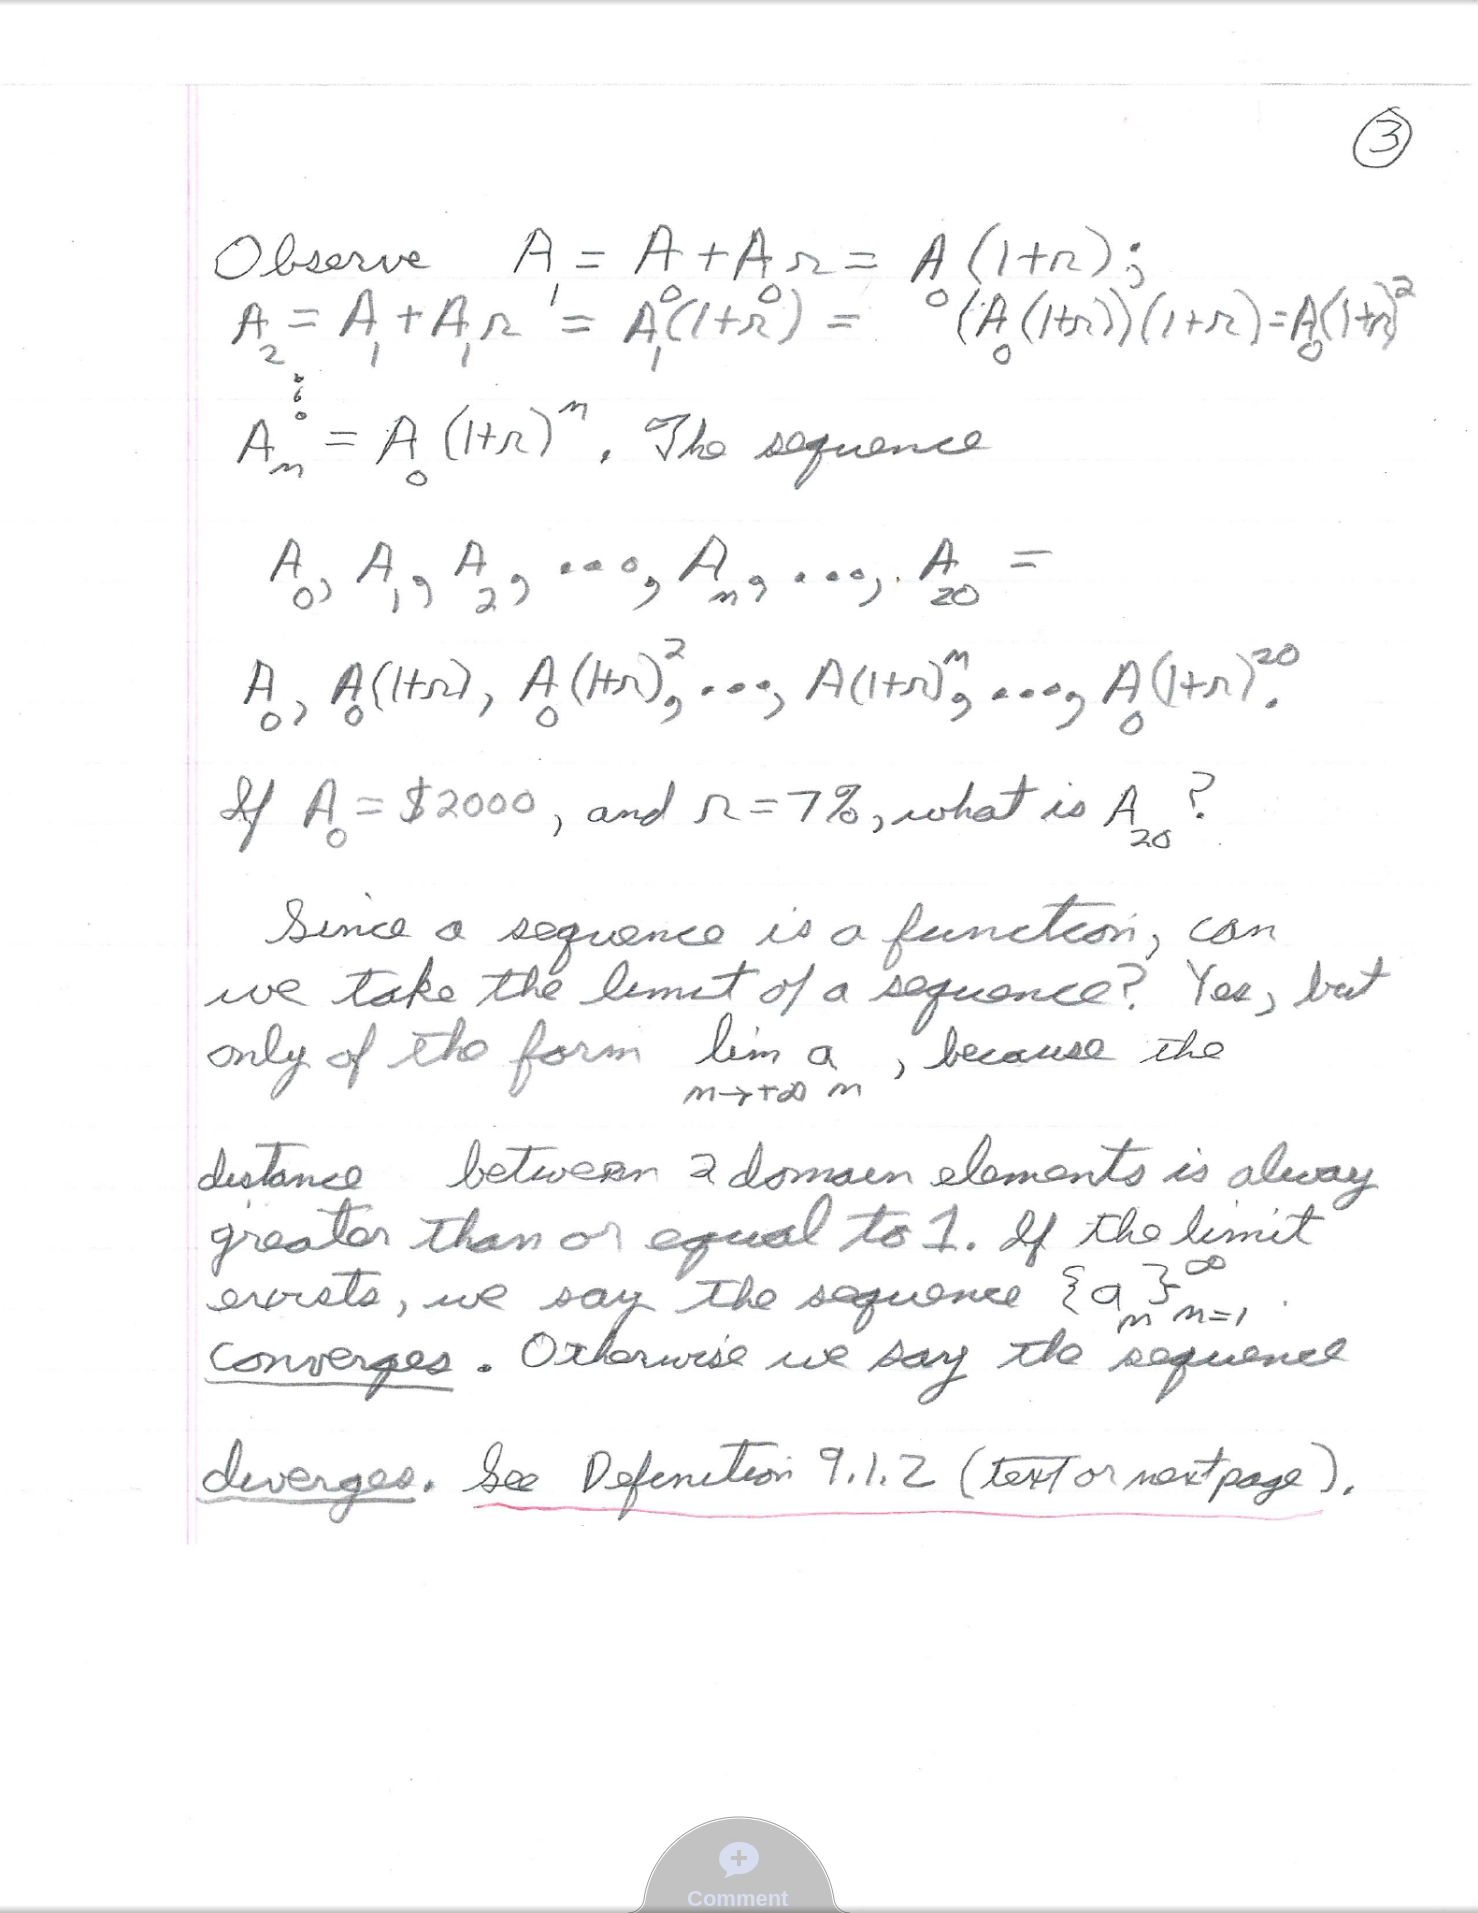 3
Observe A₁ = A₀ + A₀r = A₀(1+r);
A₂ = A₁ + A₁r = A₁(1+r) = (A₀(1+r))(1+r) = A₀(1+r)²
⋮
Aₙ = A₀(1+r)ⁿ. The sequence
A₀, A₁, A₂, ..., Aₙ, ..., A₂₀ =
A₀, A₀(1+r), A₀(1+r)², ..., A(1+r)ⁿ, ..., A₀(1+r)²⁰.
If A₀ = $2000, and r = 7%, what is A₂₀?
Since a sequence is a function, can
we take the limit of a sequence? Yes, but
only of the form lim aₙ, because the
n→+∞
distance between 2 domain elements is alway
greater than or equal to 1. If the limit
exists, we say the sequence {aₙ}∞ₙ₌₁
converges. Otherwise we say the sequence
diverges. See Definition 9.1.2 (text or next page).
Comment